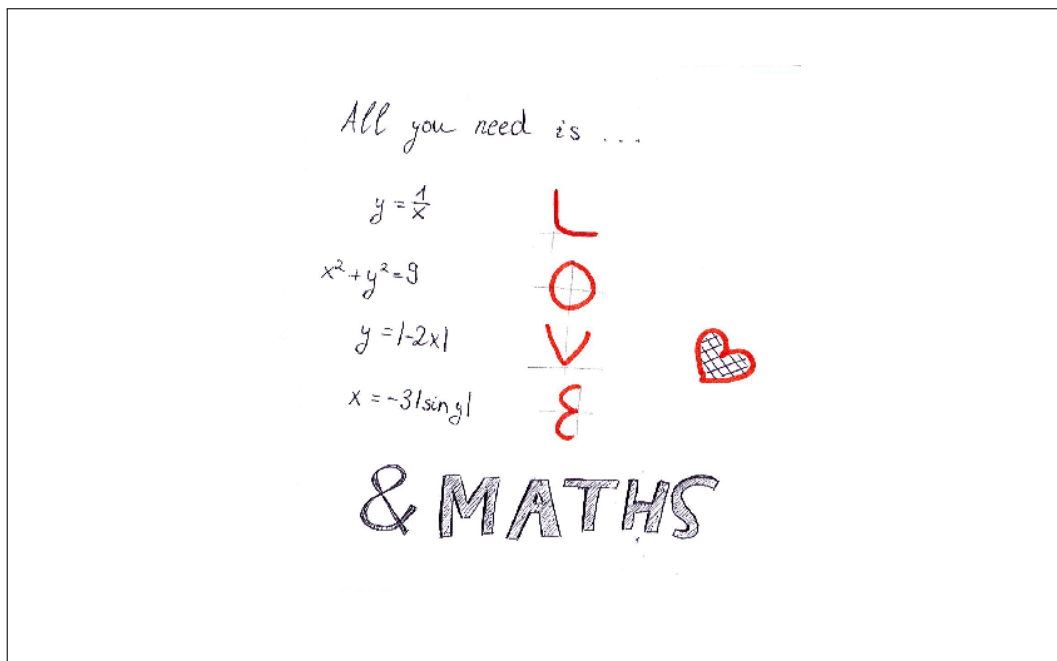 All you need is ...
y = 1/x L
x² + y² = 9 O
y = |-2x| V
x = -3|sin y| E
& MATHS